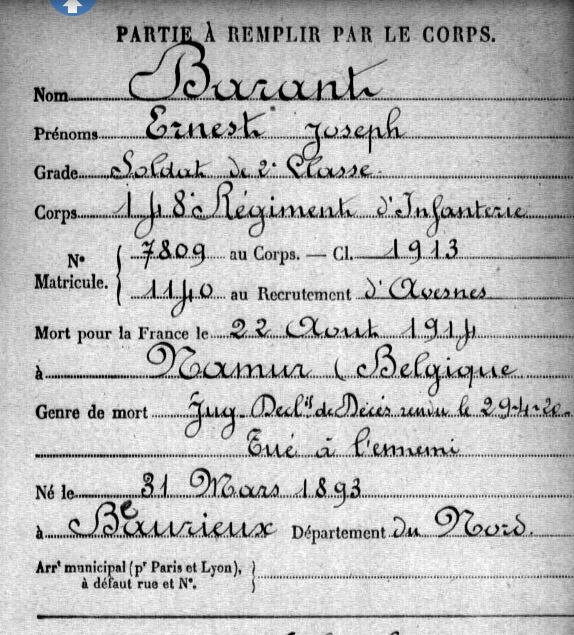 PARTIE À REMPLIR PAR LE CORPS.
Nom Barant
Prénoms Ernest Joseph
Grade Soldat de 2e Classe.
Corps 148e Régiment d'Infanterie
No Matricule. { 7809 au Corps. — Cl. 1913
1140 au Recrutement d'Avesnes
Mort pour la France le 22 Aout 1914
à Namur (Belgique
Genre de mort Jug. Déclif de Décès rendu le 29-4-20.
Tué à l'ennemi
Né le 31 Mars 1893
à Beaurieux Département du Nord.
Arrt municipal (pr Paris et Lyon), }
à défaut rue et No.